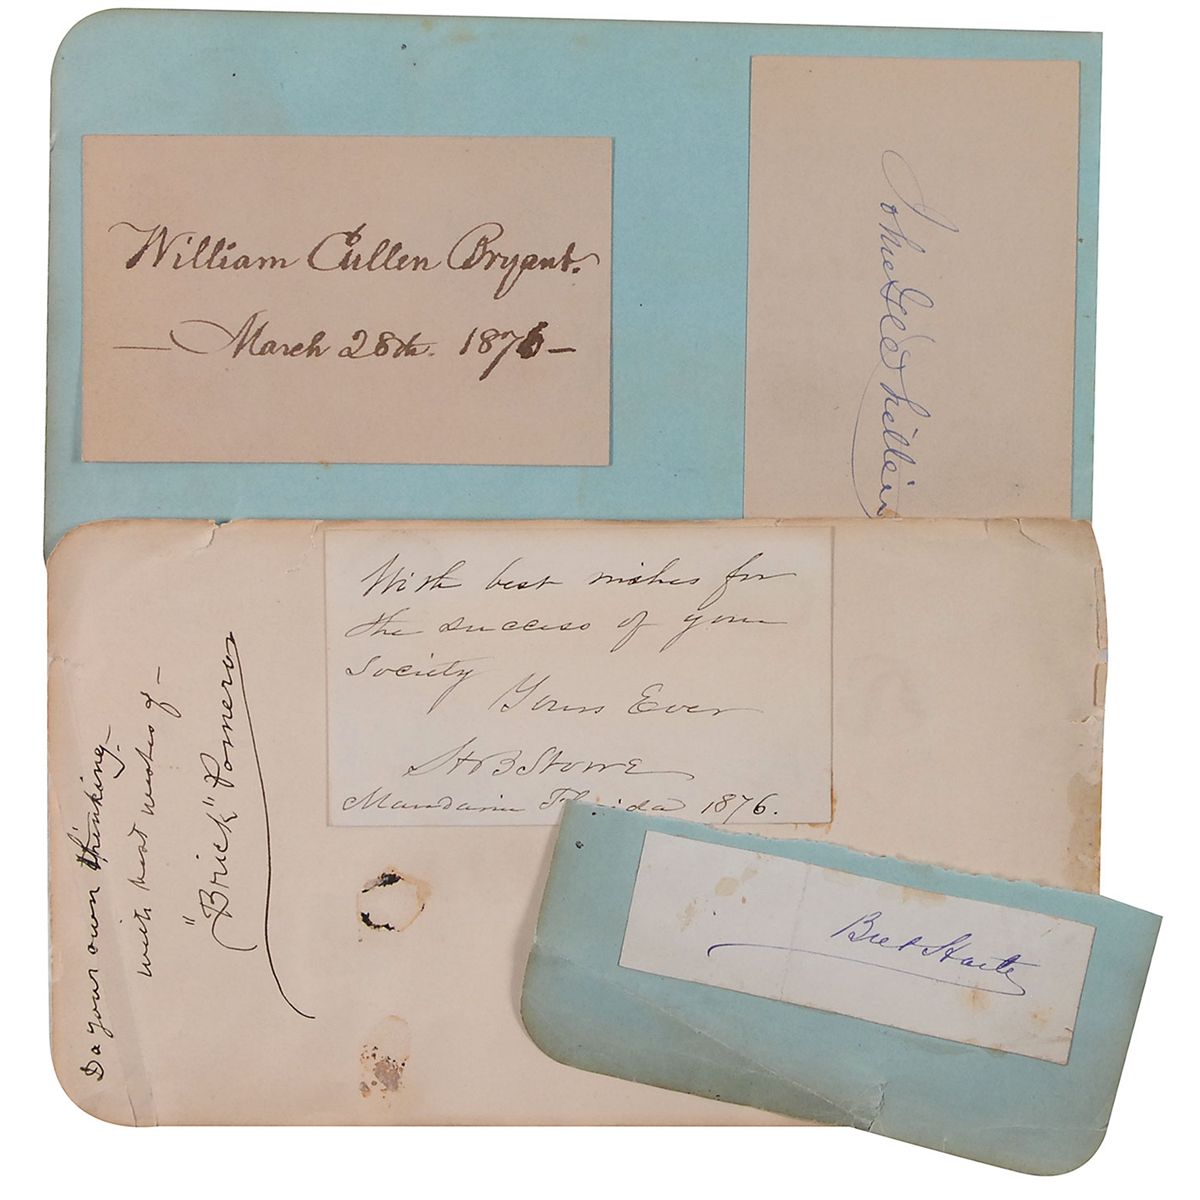 William Cullen Bryant.
— March 28th. 1876 —
With best wishes for
the success of your
Society
Yours Ever
H B Stowe
Mandarin Florida 1876.
Do your own thinking –
with best wishes of –
"Brick" Pomeroy
Bret Harte